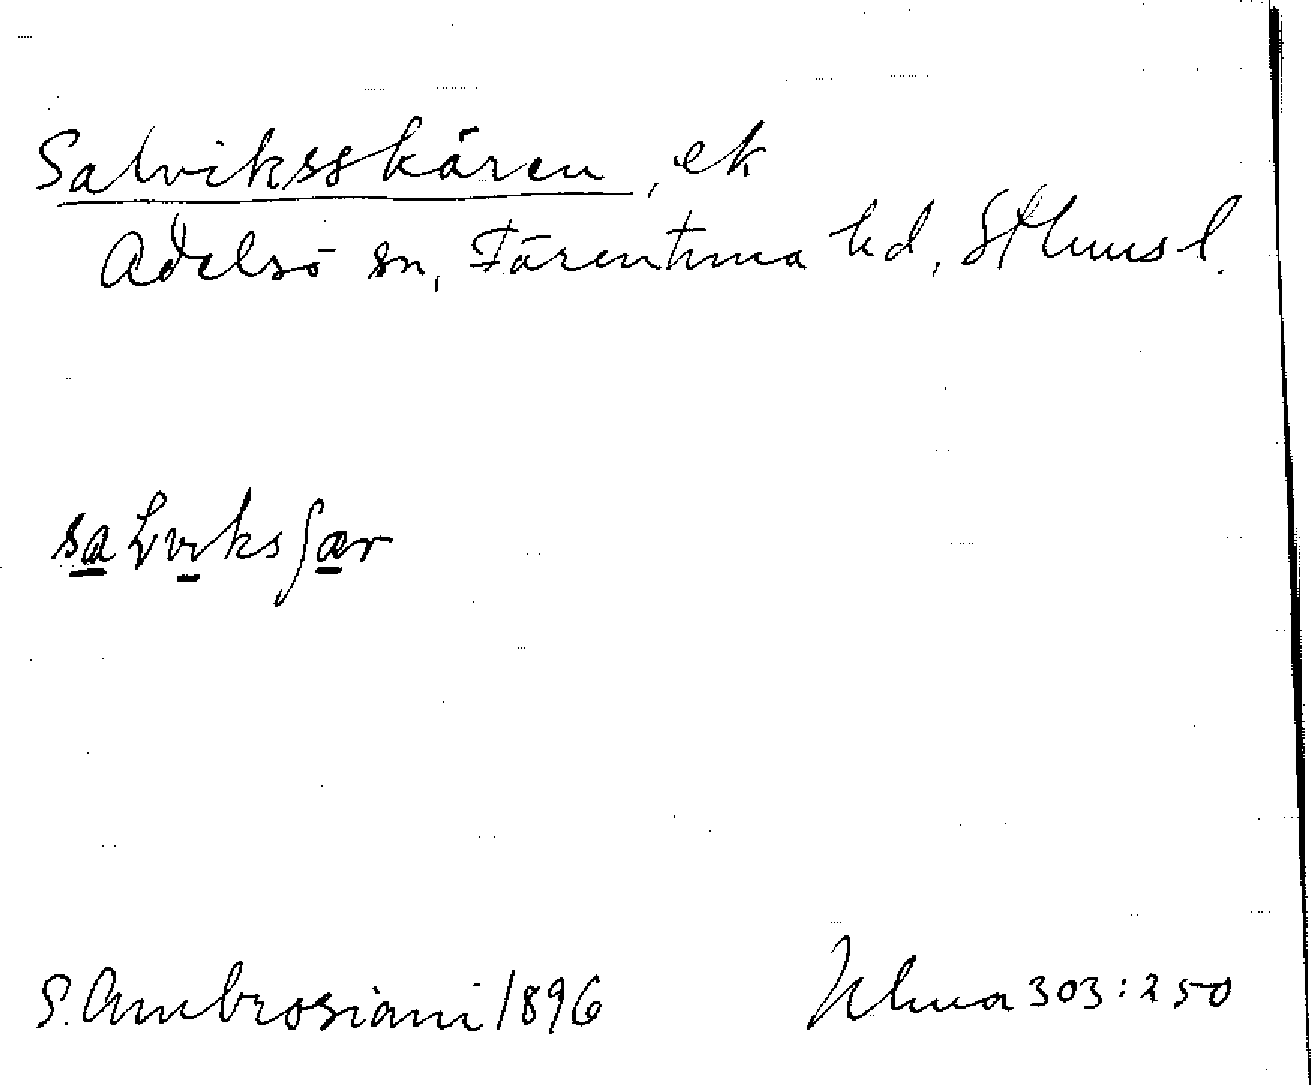 Salviksskären, ek
Adelsö sn, Färentuna hd, Sthms l.
saLviksʃær
S. Ambrosiani 1896
Uhma 303:250